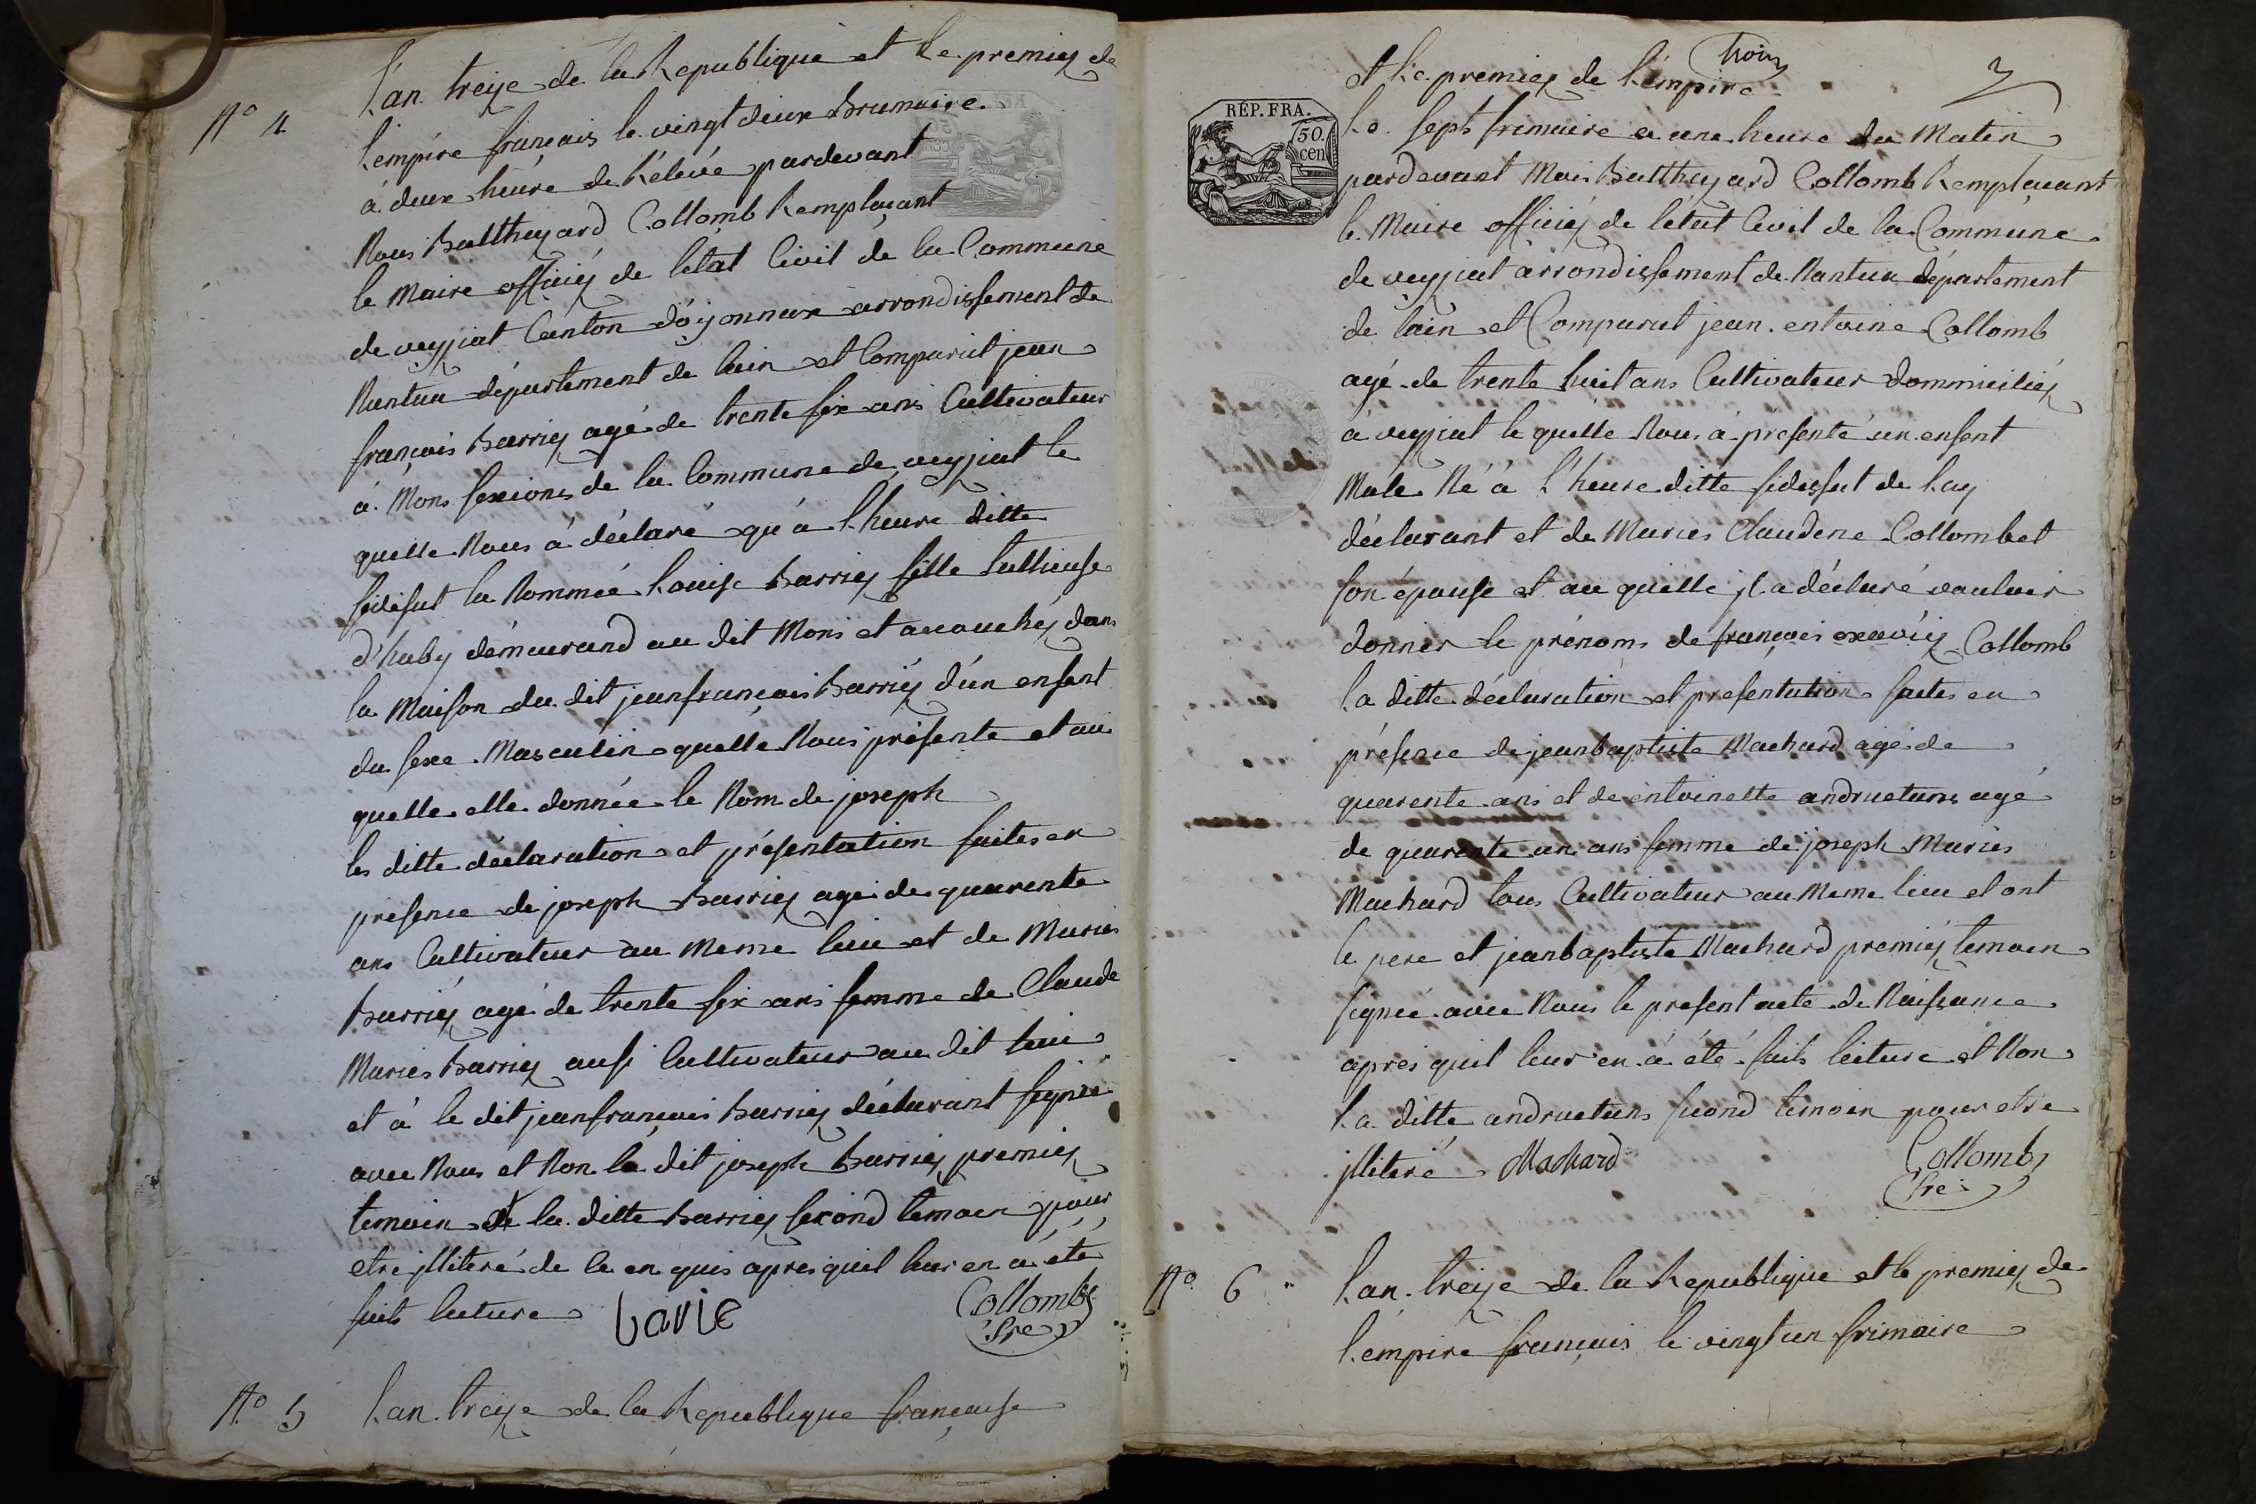 N° 4
l'an treize de la Republique et le premiez de
l'empire français le vingt deux brumaire
à deux heure de rélevée pardevant
Nous Balthazard Collomb Remplaçant
le Maire officiéz de l'état Civil de la Commune
de veyziat Canton d'oyonnax arrondissement de
Nantua département de lain et Comparut jean
françois barriez agé de trente six ans Cultivateur
à Mons sexions de la Commune de veyziat le
quelle Nous à déclaré qu'à l'heure ditte
sidesut la Nommée Louise barriez fille
demeurand au dit Mons et acouchéz dans
la Maison du dit jeanfrançois barriéz d'un enfant
du sexe Masculin quelle Nous présente et au
quelle elle donnée le Nom de joseph
les ditte déclaration et présentation faites en
présence de joseph barriez agé de quarente
ans Cultivateur au Meme lieu et de Maries
barriéz agé de trente six ans femme de Claude
Maries barriez ausi Cultivateur au dit lieu
et à le dit jeanfrançois barriez déclarant signée
avec Nous et Non le dit joseph barriez premiez
temoin et la ditte barriez second temoen pour
etre jlliteré de le en quis apres quil leur en a été
fait lecture barie Collomb
fre
N° 5 l'an treize de la Republique française
troix 3
et le premiez de l'empire
RÉP. FRA.
50
cen
le sept frimaire a une heure du Matin
pardevant Mois Balthazard Collomb Remplaçant
le Maire officiéz de l'état Civil de la Commune
de veyziat arrondissement de Nantua département
de lain et Comparut jean entoine Collomb
agé de trente huit ans Cultivateur dommiciliéz
à veyziat le quelle Nous à présenté un enfent
Male Né à l'heure ditte sidesut de luy
déclarant et de Maries Claudene Collombet
son épouse et au quelle jl a déclaré vouluir
donner le prénoms de françois exaviéz Collomb
la ditte déclaration et présentation faites en
présence de jeanbaptiste Machard agé de
quarente ans et de entoinette andructuns agé
de quarente un ans femme de joseph Maries
Machard tous Cultivateur au Meme lieu et ont
le pere et jeanbaptiste Machard premiéz temoen
signée avec Nous le present acte de Naissance
apres quil leur en à été fait leiture et Non
la ditte andructuns second temoen pour etre
jlliteré Machard Collomb
fre
N° 6 l'an treize de la Republique et le premiez de
l'empire français le vingt un frimaire